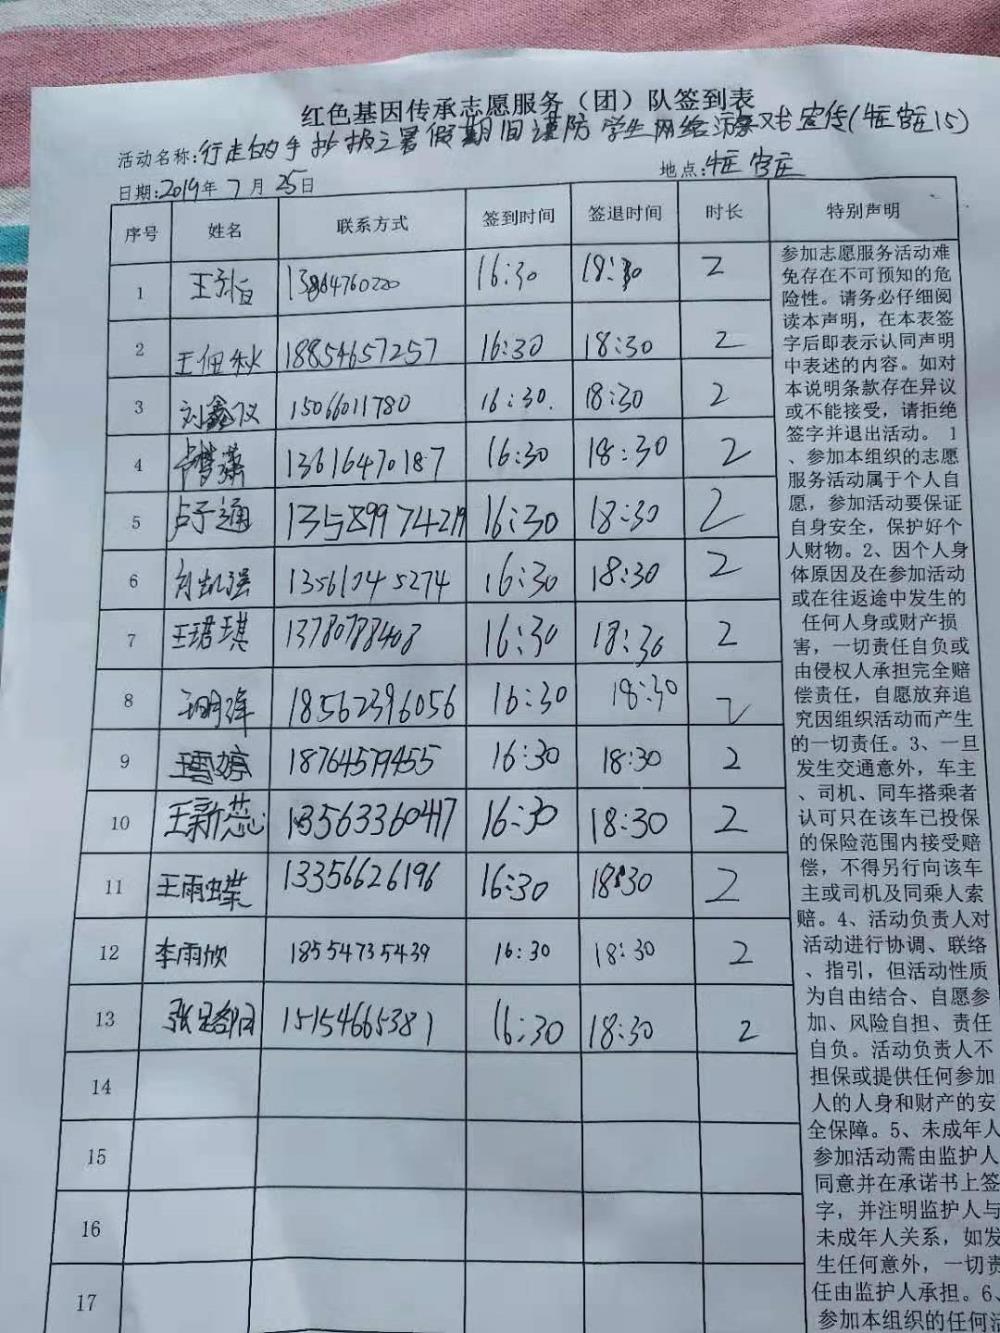 红色基因传承志愿服务（团）队签到表
活动名称:行走的手抄报之暑假期间谨防学生网络宣传(15)
日期:2019年7月25日
地点:官庄
序号 姓名 联系方式 签到时间 签退时间 时长 特别声明
1 13864760220 16:30 18:30 2
2 王佃秋 18854657257 16:30 18:30 2
3 刘鑫仪 15066011780 16:30. 18:30 2
4 13616470187 16:30 18:30 2
5 卢子通 13589974219 16:30 18:30 2
6 刘凯强 13561045274 16:30 18:30 2
7 王珺琪 13780788408 16:30 18:30 2
8 18562396056 16:30 18:30 2
9 王雪婷 18764579455 16:30 18:30 2
10 王新蕊 13563360417 16:30 18:30 2
11 王雨蝶 13356626196 16:30 18:30 2
12 李雨欣 18554735439 16:30 18:30 2
13 15154665381 16:30 18:30 2
14
15
16
17
参加志愿服务活动难
免存在不可预知的危
险性。请务必仔细阅
读本声明，在本表签
字后即表示认同声明
中表述的内容。如对
本说明条款存在异议
或不能接受，请拒绝
签字并退出活动。1
、参加本组织的志愿
服务活动属于个人自
愿，参加活动要保证
自身安全，保护好个
人财物。2、因个人身
体原因及在参加活动
或在往返途中发生的
任何人身或财产损
害，一切责任自负或
由侵权人承担完全赔
偿责任，自愿放弃追
究因组织活动而产生
的一切责任。3、一旦
发生交通意外，车主
、司机、同车搭乘者
认可只在该车已投保
的保险范围内接受赔
偿，不得另行向该车
主或司机及同乘人索
赔。4、活动负责人对
活动进行协调、联络
、指引，但活动性质
为自由结合、自愿参
加、风险自担、责任
自负。活动负责人不
担保或提供任何参加
人的人身和财产的安
全保障。5、未成年人
参加活动需由监护人
同意并在承诺书上签
字，并注明监护人与
未成年人关系，如发
生任何意外，一切责
任由监护人承担。6、
参加本组织的任何活